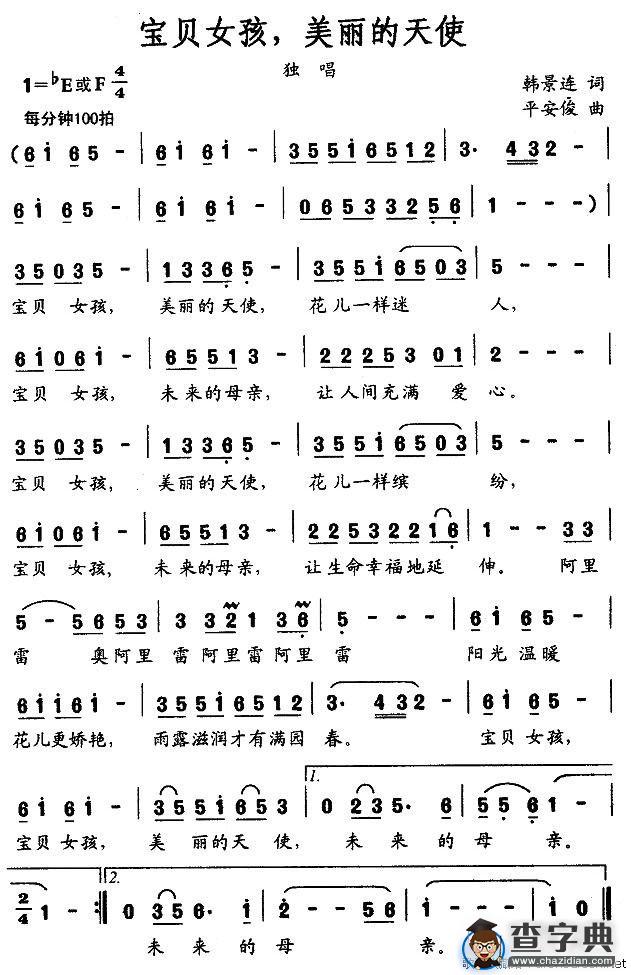 宝贝女孩，美丽的天使
独 唱
1=♭E或F 4/4
韩景连 词
每分钟100拍
平安俊 曲
( 6 i 6 5 - | 6 i 6 i - | 3 5 5 i 6 5 1 2 | 3· 4 3 2 - |
6 i 6 5 - | 6 i 6 i - | 0 6 5 3 3 2 5 6 | 1 - - ) |
3 5 0 3 5 - | 1 3 3 6 5 - | 3 5 5 i 6 5 0 3 | 5 - - - |
宝贝 女孩， 美丽的天使， 花儿一样迷 人，
6 i 0 6 i - | 6 5 5 1 3 - | 2 2 2 5 3 0 1 | 2 - - - |
宝贝 女孩， 未来的母亲， 让人间充满 爱 心。
3 5 0 3 5 - | 1 3 3 6 5 - | 3 5 5 i 6 5 0 3 | 5 - - - |
宝贝 女孩， 美丽的天使， 花儿一样缤 纷，
6 i 0 6 i - | 6 5 5 1 3 - | 2 2 5 3 2 2 1 6 | 1 - - 3 3 |
宝贝 女孩， 未来的母亲， 让生命幸福地延 伸。 阿里
5 - 5 6 5 3 | 3 3 2 1 3 6 | 5 - - - | 6 i 6 5 - |
雷 奥阿里 雷阿里雷阿里 雷 阳光 温暖
6 i i 6 i - | 3 5 5 i 6 5 1 2 | 3· 4 3 2 - | 6 i 6 5 - |
花儿更娇艳， 雨露滋润才有满园 春。 宝贝 女孩，
1.
6 i 6 i - | 3 5 5 i 6 5 3 | 0 2 3 5· 6 | 5 5 6 - |
宝贝 女孩， 美 丽的天 使， 未 来 的 母 亲。
2.
2/4 1 - :| 0 3 5 6· i | 2 - 5 6 | i - - - | i 0 0 0 |
未 来 的 母 亲。
查字典
www.chazidian.com